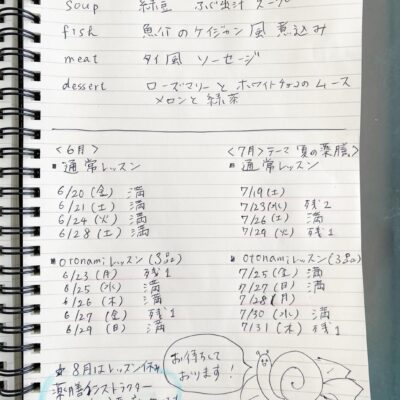 soup 緑豆 ふぐ出汁 スープ
fish 魚介のケイジャン風煮込み
meat タイ風 ソーセージ
dessert ローズマリーとホワイトチョコのムース
メロンと緑茶
<6月>
■通常レッスン
6/20(金) 満
6/21(土) 満
6/24(火) 満
6/28(土) 満
■otonamiレッスン(3品)
6/23(月) 残1
6/25(水) 満
6/26(木) 満
6/27(金) 残1
6/29(日) 満
<7月>テーマ 夏の薬膳
■通常レッスン
7/19(土)
7/23(水) 残2
7/26(土) 満
7/29(火) 残1
■otonamiレッスン(3品)
7/25(金) 満
7/27(日) 満
7/28(月)
7/30(水) 満
7/31(木) 残1
お待ちして
おります!
8月はレッスン休
薬膳インストラクター